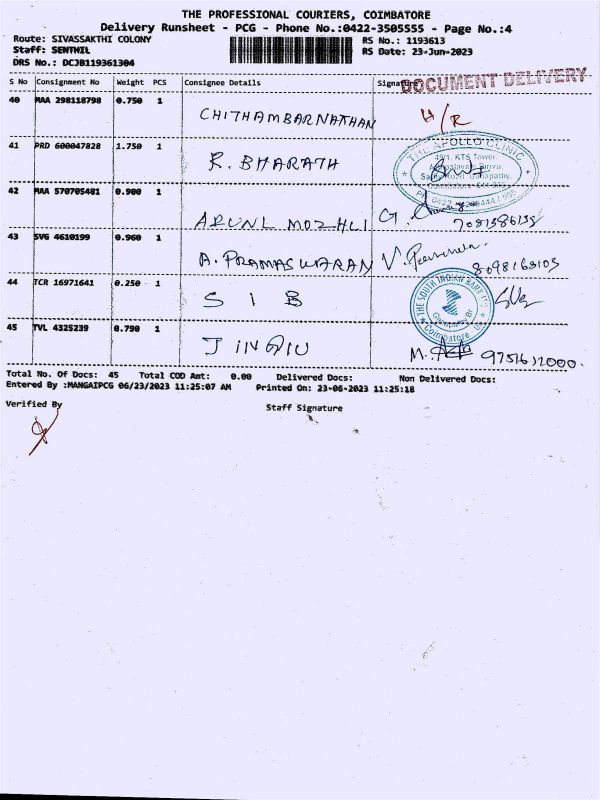 THE PROFESSIONAL COURIERS, COIMBATORE
Delivery Runsheet - PCG - Phone No.:0422-3505555 - Page No.:4
Route: SIVASSAKTHI COLONY RS No.: 1193613
Staff: SENTHIL RS Date: 23-Jun-2023
DRS No.: DCJB119361304
S No Consignment No Weight PCS Consignee Details Signature
DOCUMENT DELIVERY
40 MAA 298118798 0.750 1 CHITHAMBARNATHAN H/R
41 PRD 600047828 1.750 1 R. BHARATH
THE APOLLO CLINIC
KTS Tower,
42 MAA 570705481 0.900 1 ARUNL MOZHLI G.
43 SVG 4610199 0.960 1 A. PRAMASWARAN V.
8098168103
44 TCR 16971641 0.250 1 S I B
THE SOUTH INDIAN BANK
Coimbatore
45 TVL 4325239 0.790 1 JINGIU M. 9751612000.
Total No. Of Docs: 45 Total COD Amt: 0.00 Delivered Docs: Non Delivered Docs:
Entered By :MANGAIPCG 06/23/2023 11:25:07 AM Printed On: 23-06-2023 11:25:18
Verified By Staff Signature